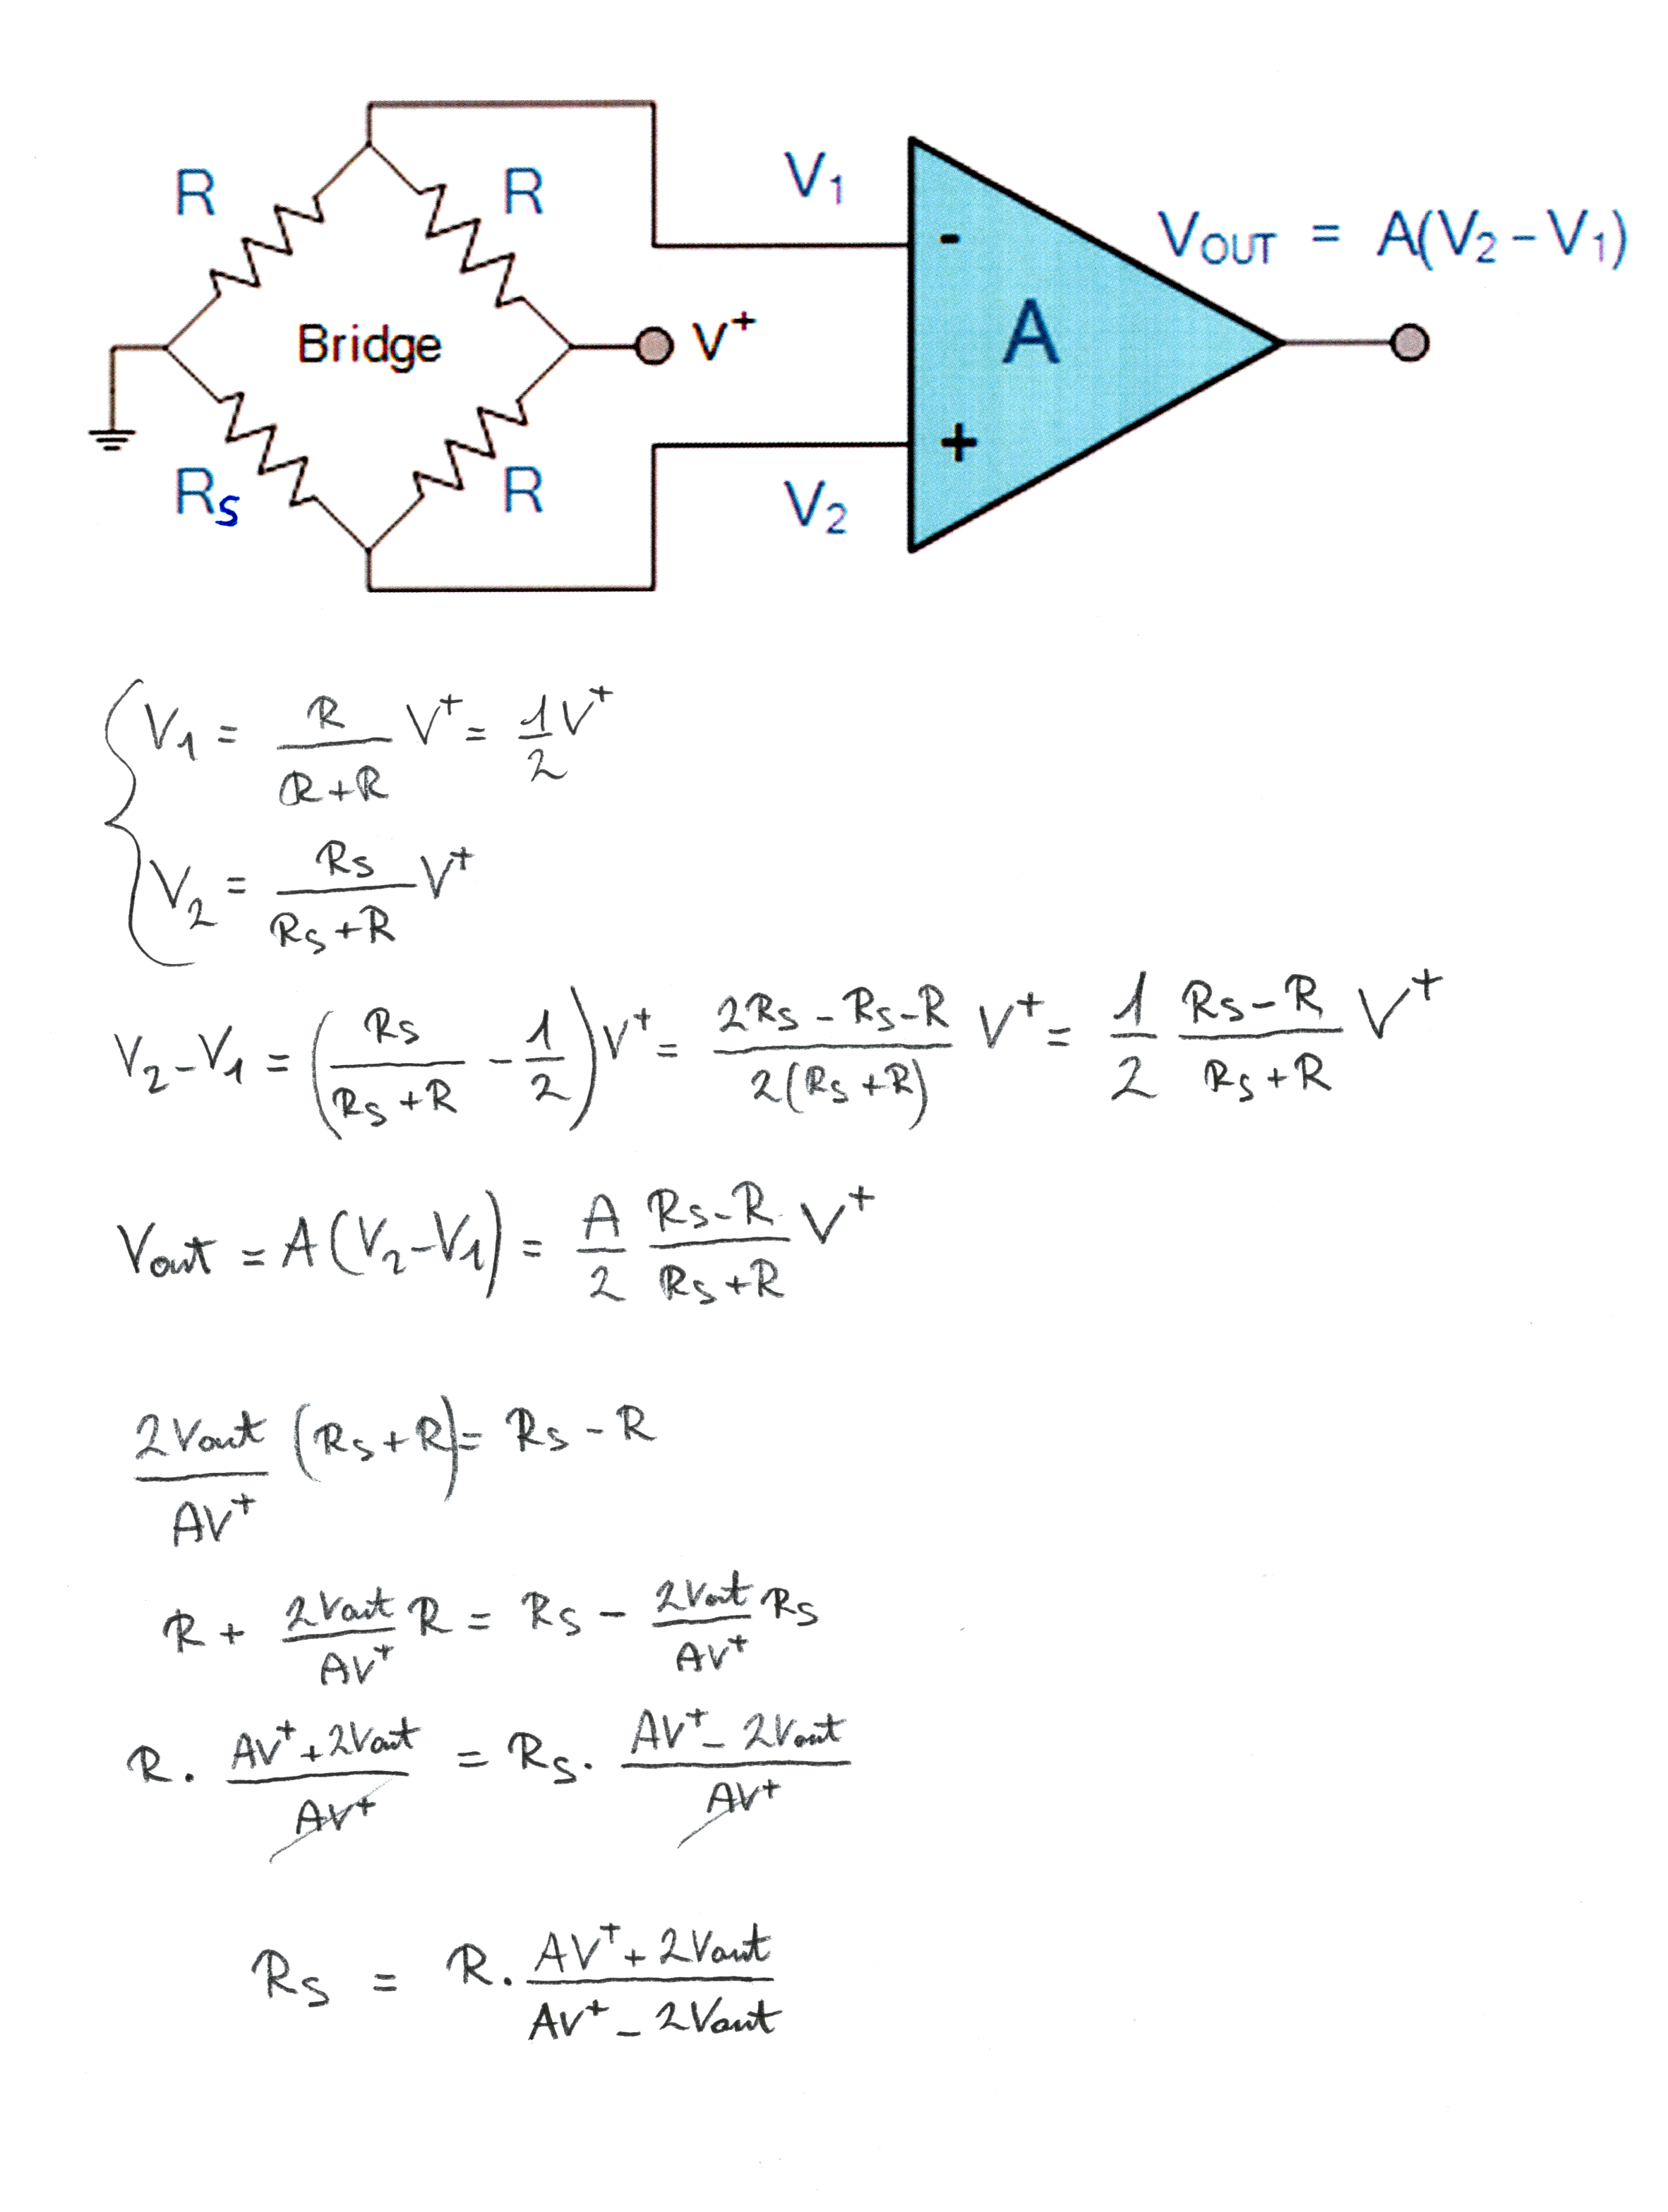 R R V₁
V_OUT = A(V₂-V₁)
- A
Bridge V⁺
+
R_S R V₂
V₁ = R/(R+R) V⁺ = 1/2 V⁺
V₂ = R_S/(R_S+R) V⁺
V₂-V₁ = (R_S/(R_S+R) - 1/2) V⁺ = (2R_S-R_S-R)/(2(R_S+R)) V⁺ = 1/2 (R_S-R)/(R_S+R) V⁺
Vout = A(V₂-V₁) = A/2 (R_S-R)/(R_S+R) V⁺
2Vout/AV⁺ (R_S+R) = R_S-R
R + 2Vout/AV⁺ R = R_S - 2Vout/AV⁺ R_S
R . (AV⁺+2Vout)/AV⁺ = R_S . (AV⁺-2Vout)/AV⁺
R_S = R . (AV⁺+2Vout)/(AV⁺-2Vout)